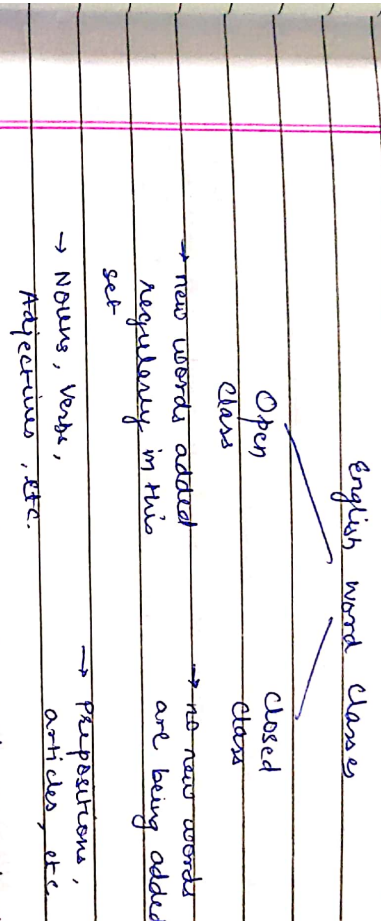 English Word Classes
Open
Class
→ new words added
regularly in this
set
→ Nouns, Verbs,
Adjectives, etc.
Closed
Class
→ no new words
are being added
→ Prepositions,
articles, etc.